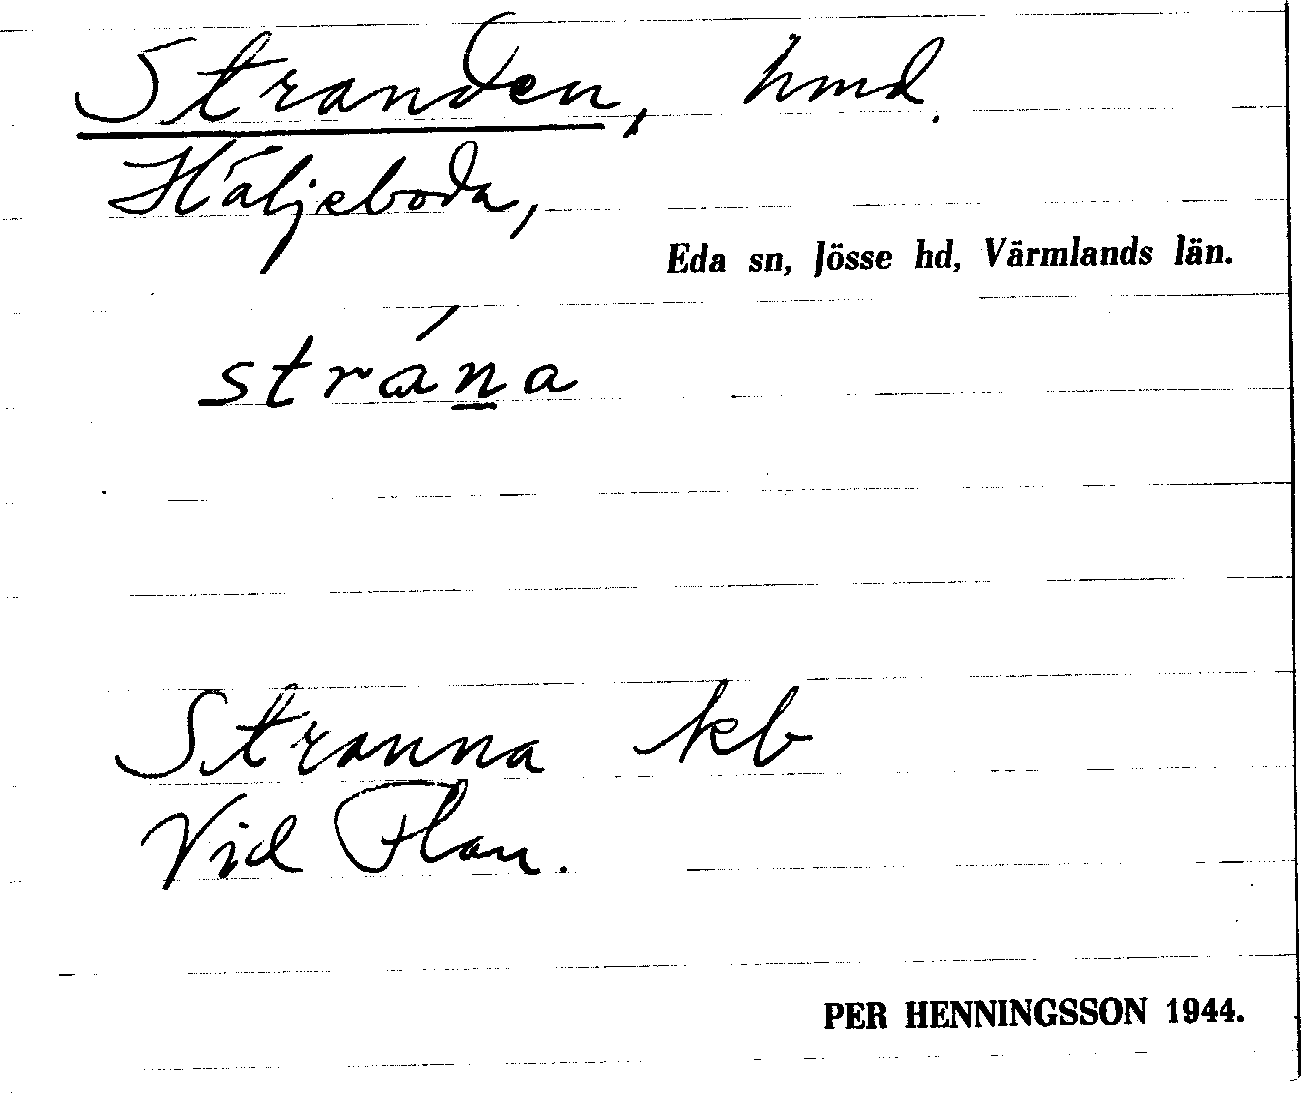 Stranden, hmd.
Häljeboda,
Eda sn, Jösse hd, Värmlands län.
strána
Stranna kb
Vid Flan.
PER HENNINGSSON 1944.